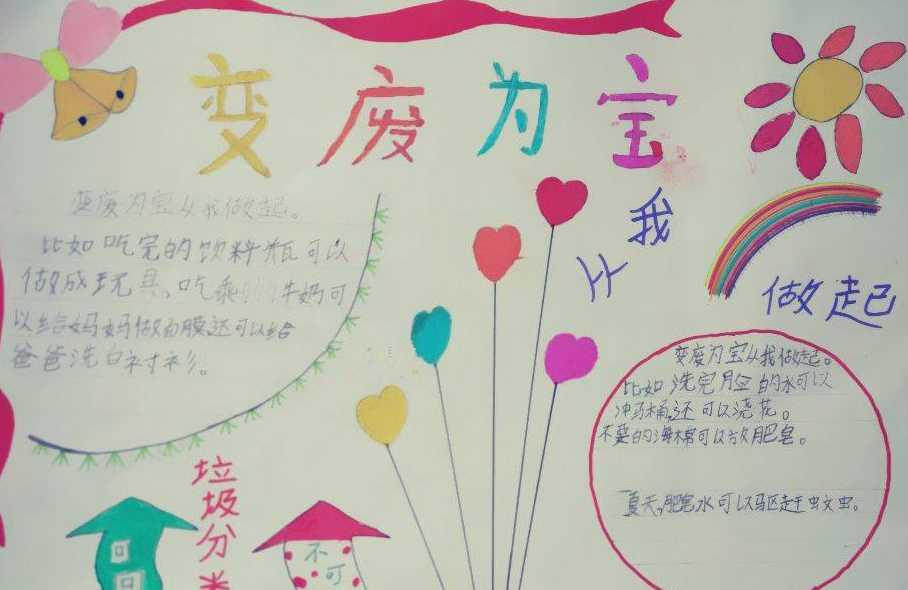 变废为宝
从我
做起
变废为宝从我做起。
比如吃完的饮料瓶可以
做成玩具。吃剩的牛奶可
以给妈妈做面膜还可以给
爸爸洗白衬衫。
变废为宝从我做起。
比如洗完脸的水可以
冲马桶,还可以浇花。
不要的海棉可以放肥皂。
夏天,肥皂水可以驱赶虫文虫。
垃
圾
分
类
可
回
不
可